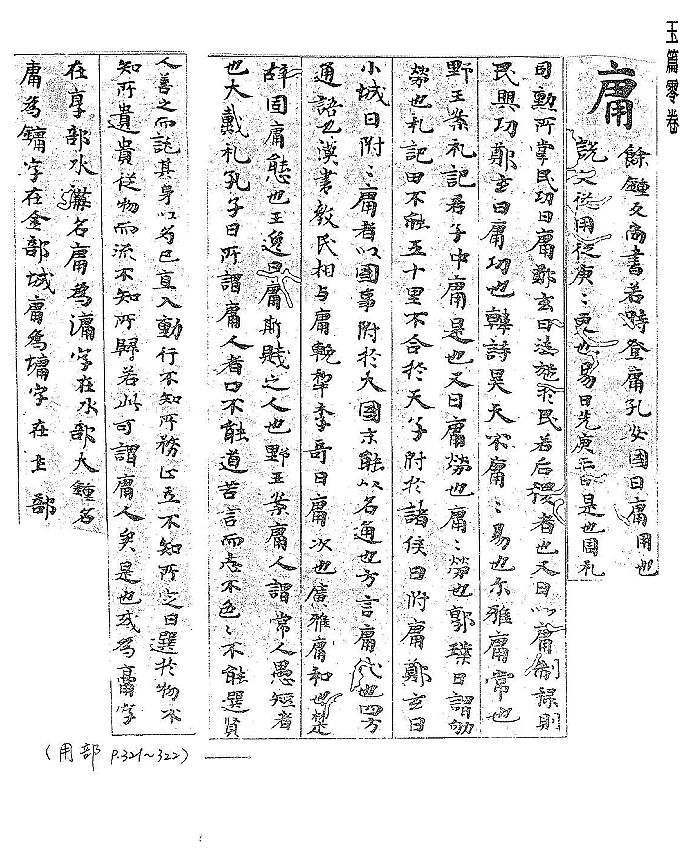 玉篇零卷
庸
餘鍾反尚書若時登庸孔安國曰庸用也
說文從用從庚〻更也易曰先庚三日是也周礼
司勳所掌民功曰庸鄭玄曰法施於民若后稷者也又曰以庸制祿則
民興功鄭玄曰庸功也韓詩昊天不庸〻易也尒雅庸常也
野王案礼記君子中庸是也又曰庸勞也庸〻勞也郭璞曰謂功
勞也礼記曰不能五十里不合於天子附於諸侯曰附庸鄭玄曰
小城曰附〻庸者以國事附於大國未能以名通也方言庸代也四方
通語也漢書教民相与庸輓犁李奇曰庸次也廣雅庸和也楚
辞固庸態也王逸曰庸斯賤之人也野王案庸人謂常人愚短者
也大戴礼孔子曰所謂庸人者口不能道善言而志不邑〻不能選賢
人善之而託其身以為已直入動行不知所務止立不知所之日選於物不
知所遺貴從物而流不知所歸若此可謂庸人矣是也或為𩫏字
在享部水名庸為滽字在水部大鍾名
庸為鏞字在金部城庸為墉字在土部
(用部 P.321~322)